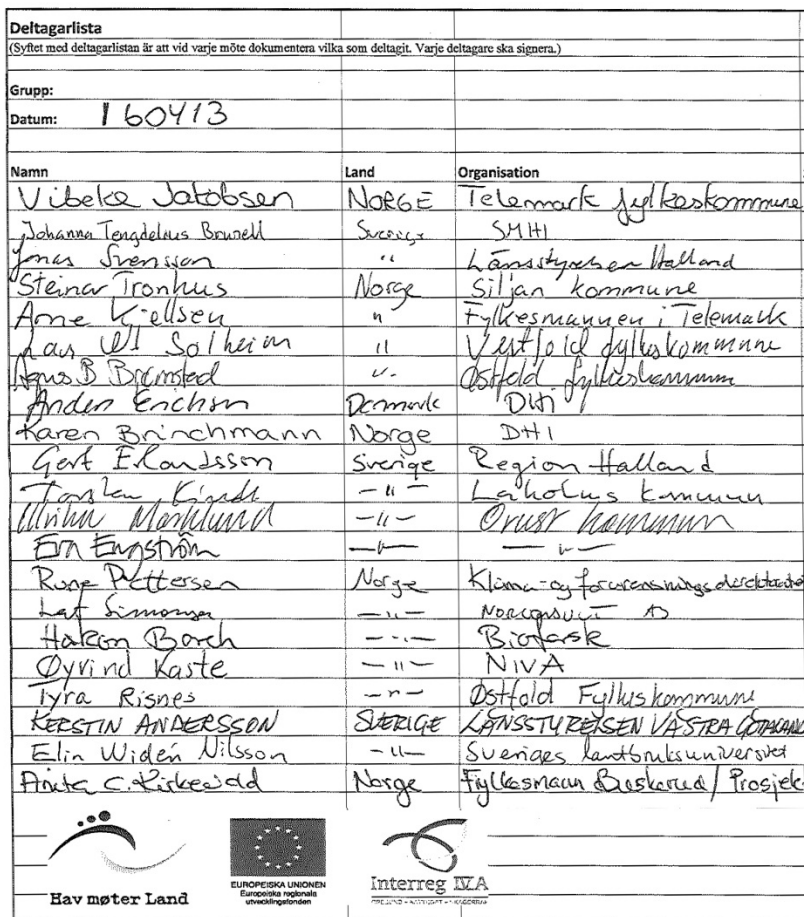 Deltagarlista
(Syftet med deltagarlistan är att vid varje möte dokumentera vilka som deltagit. Varje deltagare ska signera.)
Grupp:
Datum: 160413
Namn Land Organisation
Vibeke Jakobsen NORGE Telemark fylkeskommune
Johanna Tengdelius Brunell Sverige SMHI
Jonas Svensson " Länsstyrelsen Halland
Steinar Tronhus Norge Siljan kommune
Arne Kjellsen " Fylkesmannen i Telemark
Solheim " Vestfold fylkeskommune
B " Østfold fylkeskommune
Erichsen Danmark DHI
Karen Brinchmann Norge DHI
Gert Erlandsson Sverige Region Halland
— " — Laholms kommun
Marklund — " — Orust kommun
Engström — " — — " —
Rune Pettersen Norge Klima- og forurensningsdirektoratet
Simonsen — " —
Håkon Borch — " — Bioforsk
Øyvind Kaste — " — NIVA
Tyra Risnes — " — Østfold Fylkeskommune
KERSTIN ANDERSSON SVERIGE LÄNSSTYRELSEN VÄSTRA GÖTALAND
Elin Widén Nilsson — " — Sveriges lantbruksuniversitet
Anita C. Norge Fylkesmann Buskerud / Prosjek
Hav møter Land
EUROPEISKA UNIONEN
Europeiska regionala
utvecklingsfonden
Interreg IVA